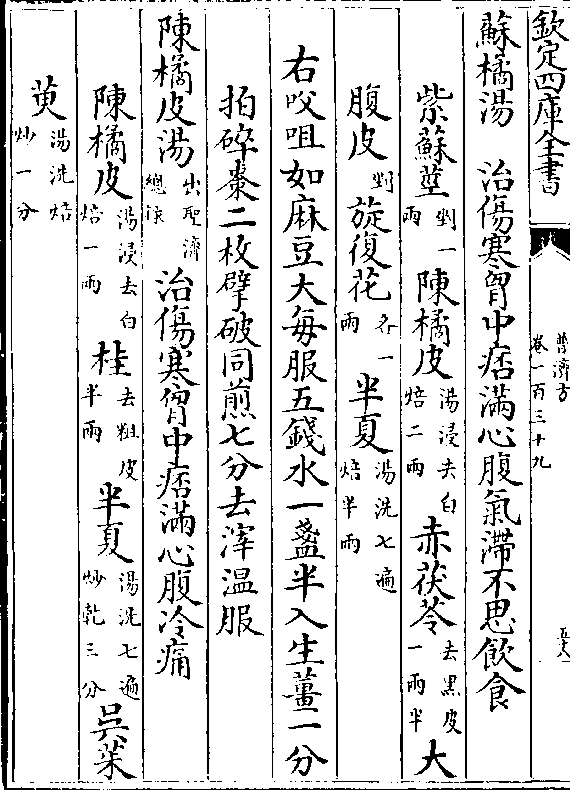 欽定四庫全書
普濟方
卷一百三十九
蘇橘湯　治傷寒胷中痞滿心腹氣滯不思飲食
紫蘇莖剉一兩　陳橘皮湯浸去白焙二兩　赤茯苓去黑皮一兩半　大
腹皮剉　旋復花各一兩　半夏湯洗七遍焙半兩
右㕮咀如麻豆大每服五錢水一盞半入生薑一分
拍碎棗二枚擘破同煎七分去滓温服
陳橘皮湯出聖濟總録　治傷寒胷中痞滿心腹冷痛
陳橘皮湯浸去白焙一兩　桂去粗皮半兩　半夏湯洗七遍炒乾三分　吳茱
萸湯洗焙炒一分